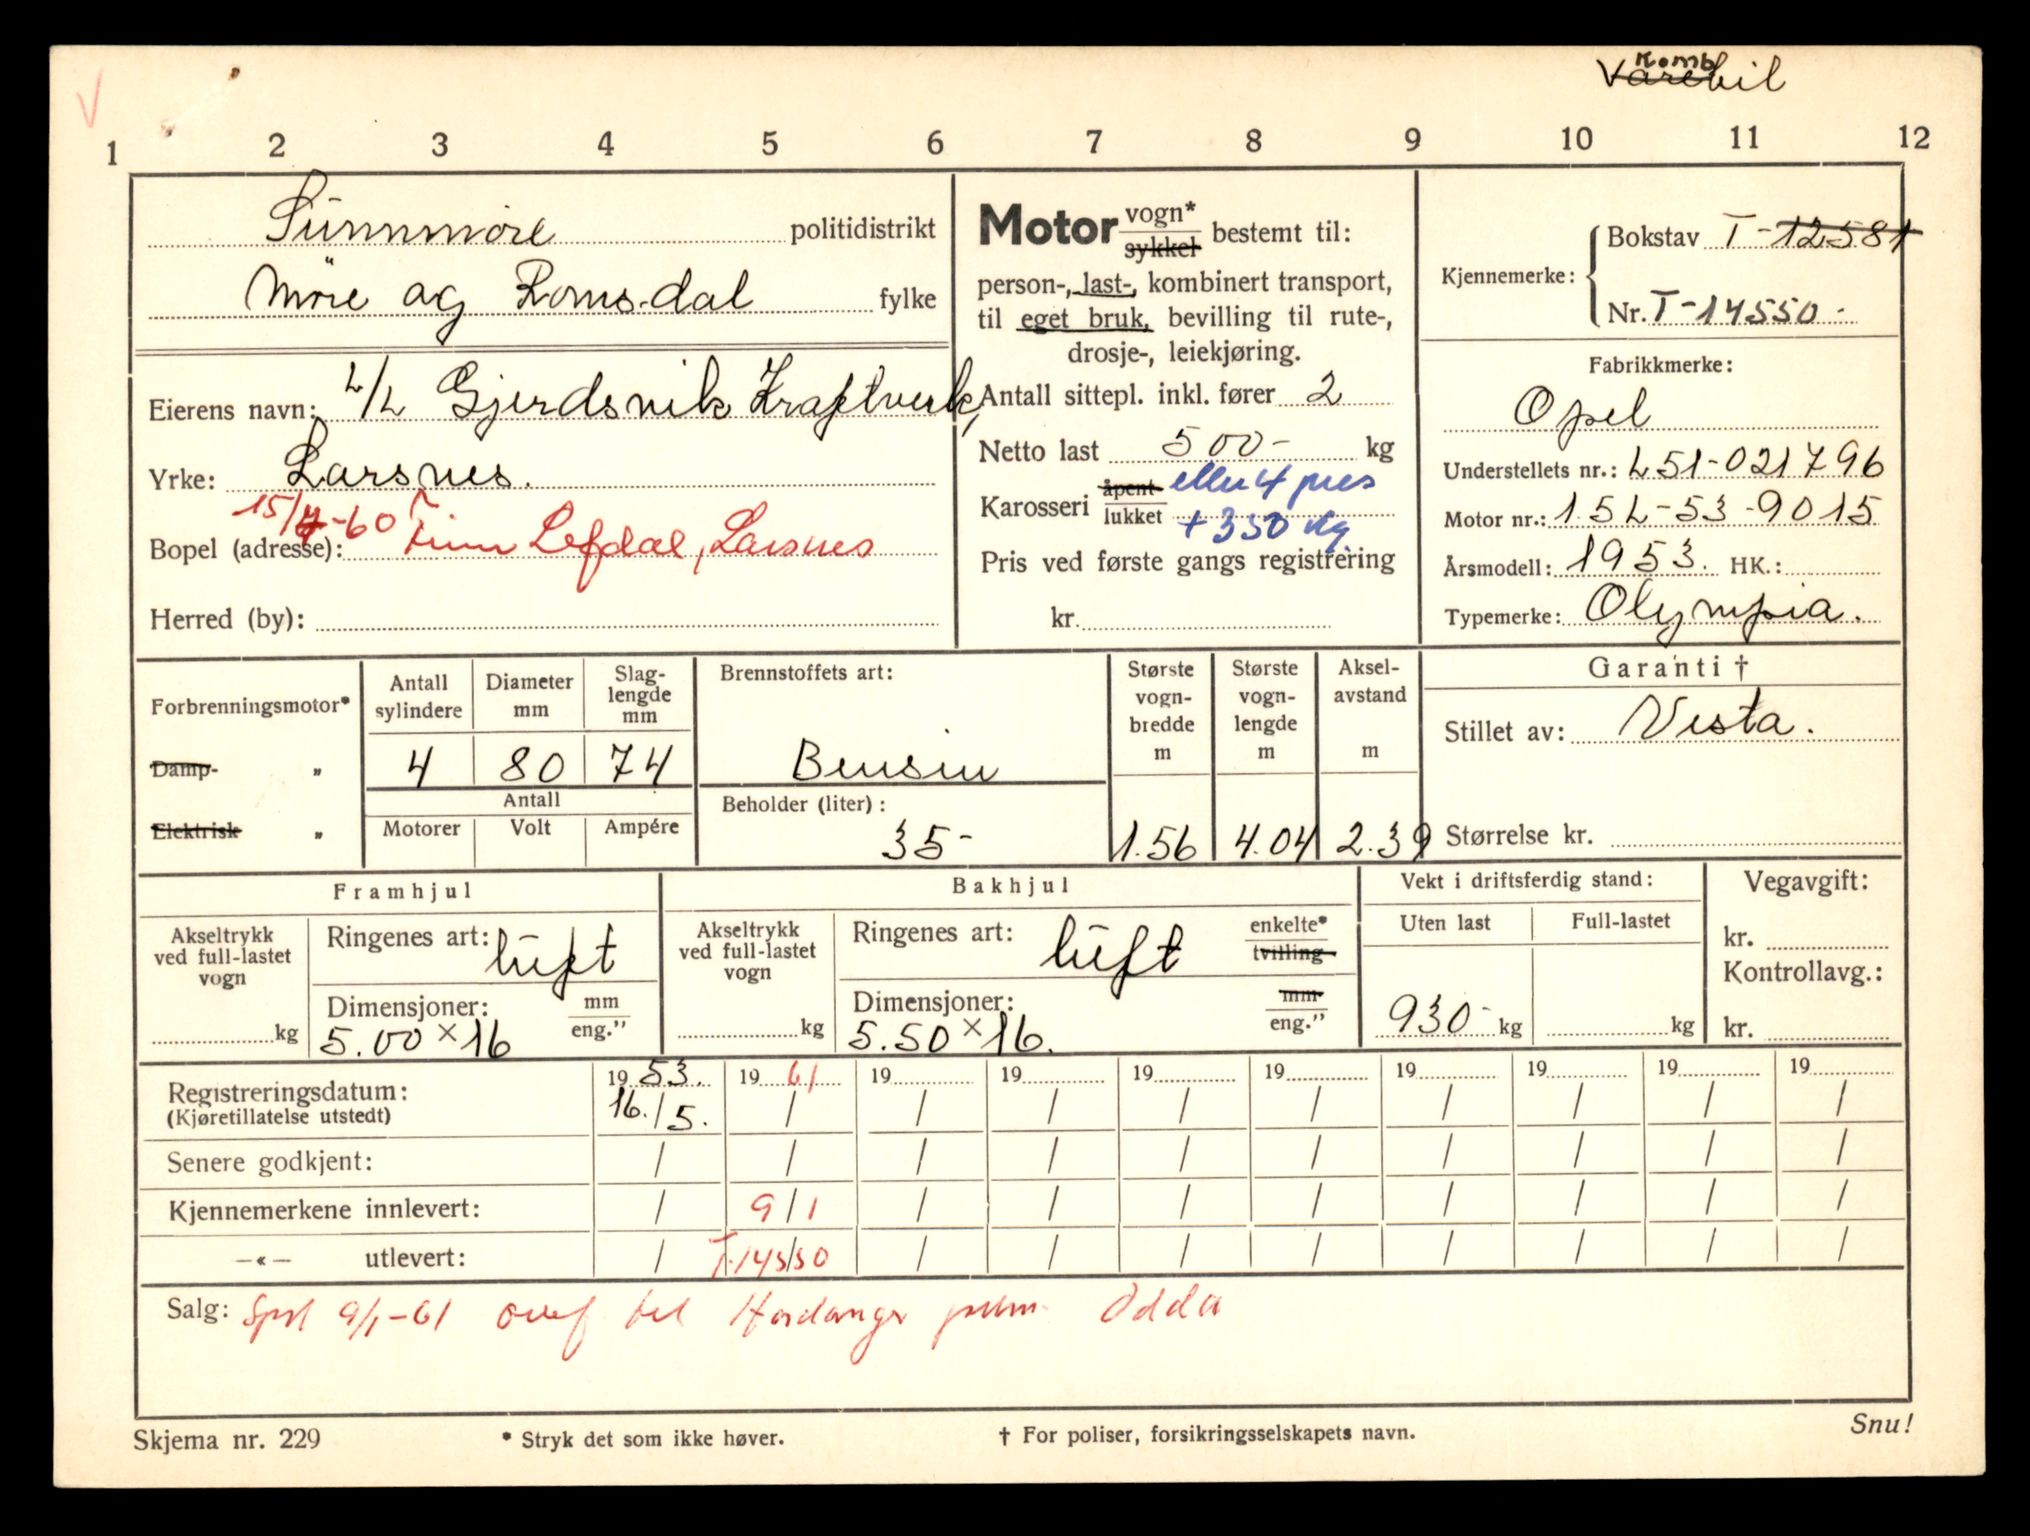 Komb
Varebil
1 2 3 4 5 6 7 8 9 10 11 12
Sunnmøre politidistrikt
Møre og Romsdal fylke
Eierens navn: L/L Gjerdsvik Kraftverk,
Yrke: Larsnes.
15/7-60
Bopel (adresse): Finn Lefdal, Larsnes
Herred (by):
Motor vogn* sykkel bestemt til:
person-, last-, kombinert transport,
til eget bruk, bevilling til rute-,
drosje-, leiekjøring.
Antall sittepl. inkl. fører 2
Netto last 500- kg
Karosseri åpent lukket eller 4 pers
+ 350 kg
Pris ved første gangs registrering
kr.
Kjennemerke: Bokstav T-12581
Nr. T-14550-
Fabrikkmerke:
Opel
Understellets nr.: L51-021796
Motor nr.: 15L-53-9015
Årsmodell: 1953. HK.:
Typemerke: Olympia.
Forbrenningsmotor*
Damp- „
Elektrisk „
Antall sylindere Diameter mm Slag-lengde mm
4 80 74
Antall
Motorer Volt Ampére
Brennstoffets art:
Bensin
Beholder (liter):
35-
Største vogn-bredde m Største vogn-lengde m Aksel-avstand m
1.56 4.04 2.39
Garanti †
Stillet av: Vesta.
Størrelse kr.
Framhjul
Akseltrykk ved full-lastet vogn
kg
Ringenes art: luft
Dimensjoner: mm eng.”
5.00 × 16
Bakhjul
Akseltrykk ved full-lastet vogn
kg
Ringenes art: luft enkelte* tvilling
Dimensjoner: mm eng.”
5.50 × 16.
Vekt i driftsferdig stand:
Uten last Full-lastet
930- kg kg
Vegavgift:
kr.
Kontrollavg.:
kr.
Registreringsdatum: 19 53. 19 61 19 19 19 19 19 19 19 19
(Kjøretillatelse utstedt) 16./5. / / / / / / / / /
Senere godkjent: / / / / / / / / / /
Kjennemerkene innlevert: / 9/1 / / / / / / / /
—«— utlevert: / T.14550 / / / / / / / /
Salg: 9/1-61 overf til Hardanger Odda
Skjema nr. 229 * Stryk det som ikke høver. † For poliser, forsikringsselskapets navn. Snu!